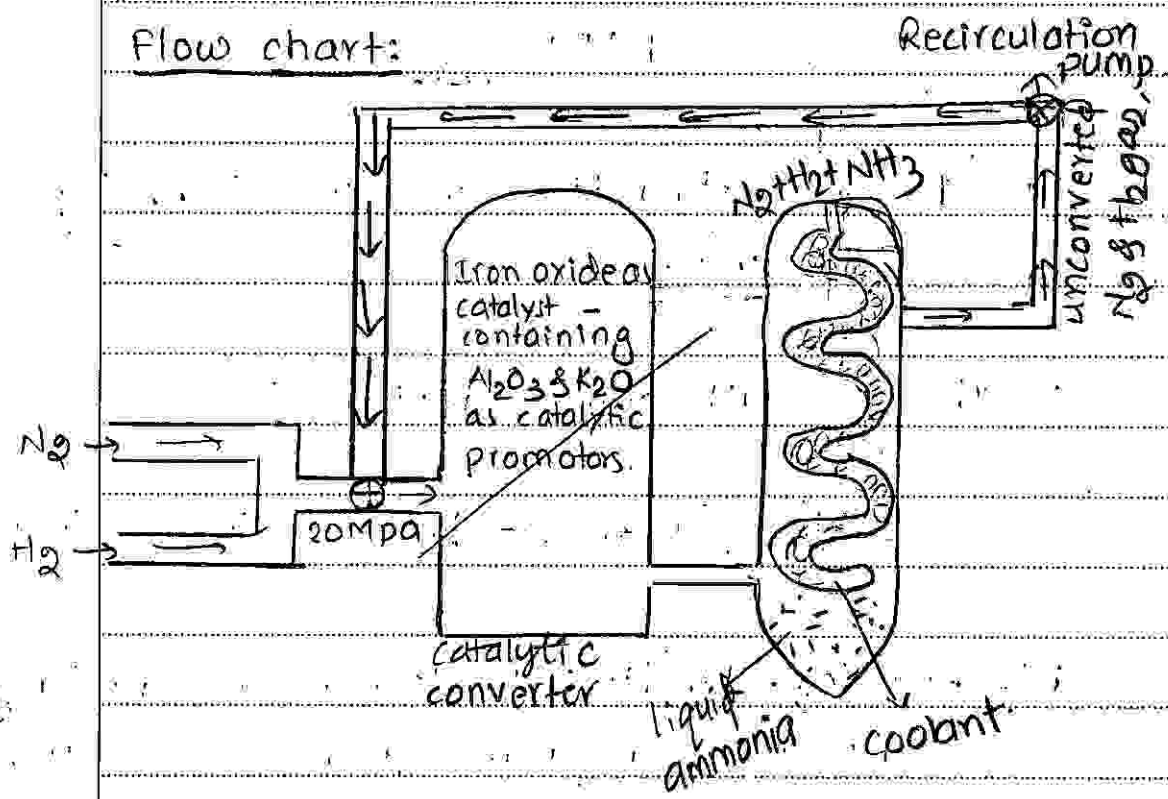 Flow chart:
Recirculation
pump
unconverted
N2 & H2 gas
N2+H2+NH3
Iron oxide as
catalyst -
containing
Al2O3 & K2O
as catalytic
promotors.
N2
H2
20MPa
catalytic
converter
liquid
ammonia
coolant.